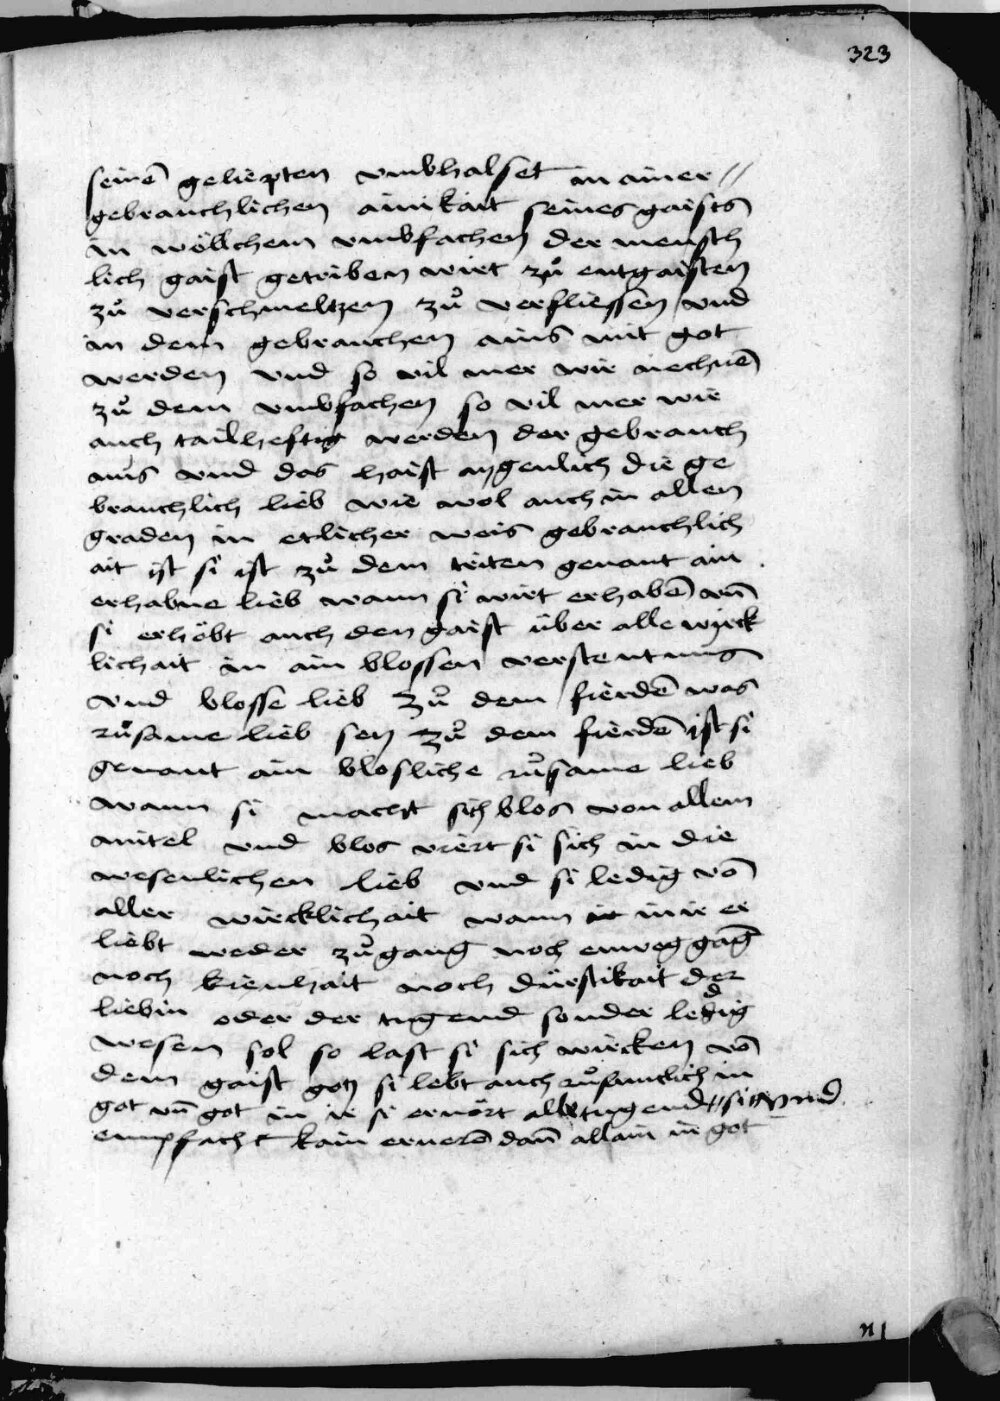 323
seinē geliepten vmbhalset in ainer //
gebrauchlichen ainikait seines gaists
in wöllchem vmbfachen der mensch
lich gaist getriben wirt zů entgaisten
zů verschmeltzen zů verfliessen vnd
in dem gebrauchen ains mit got
werden vnd so vil mer wir nechnē
zů dem vmbfachen so vil mer wir
auch tailheftig werden der gebrauch
ains vnd das haist aygenlich die ge
brauchlich lieb wie wol auch in allen
graden in etlicher weis gebrauchlich
ait ist si ist zů dem triten genant ain
erhabne lieb wann si wirt erhabē vn̄
si erhöbt auch den gaist über alle wirck
lichait in ain blossen verstentnus
vnd blosse lieb zů dem fierdē was
růsame lieb sey zů dem fierdē ist si
genant ain blosliche růsame lieb
wann si macht sich blos von allem
mitel vnd blos viert si sich in die
wesenlichen lieb vnd si ledig vō
aller wircklichait wann in ir er
liebt weder zůgang noch enweg gāg
noch kienhait noch dürstikait der
liebin oder der tugend sonder ledig
wesen sol so last si sich wircken vō
dem gaist gotz si lebt auch růsamclich in
got vn̄ got in ir si ernört alle tugend // si vnd
empfacht kain ernerē dan̄ allain in got
n 1